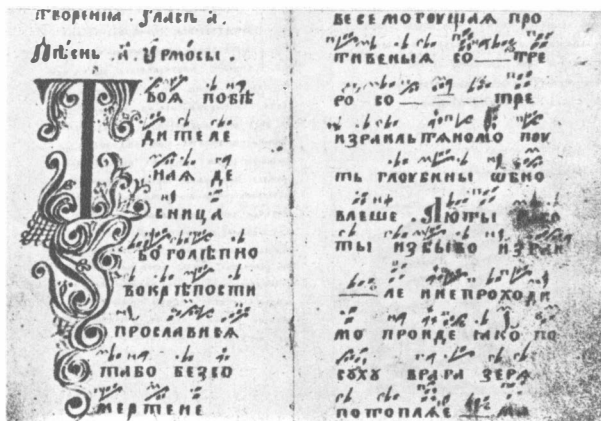 творениа . гласъ а҃ .
Пѣснь . а҃ . Ирмосы .
Твоя побѣ
дителе
ная де
сница
боголѣпно
вокрѣпости
прославися
табо безсо
мертене
весемогоущая про
тивеныя со тре
ро со тре
израильтяномо поу
ть глоубины ѡбно
влеше . Люты
ты избыво израи
ле и непроходи
мо проиде ꙗко по
соуху врага зеря
потопляе ма